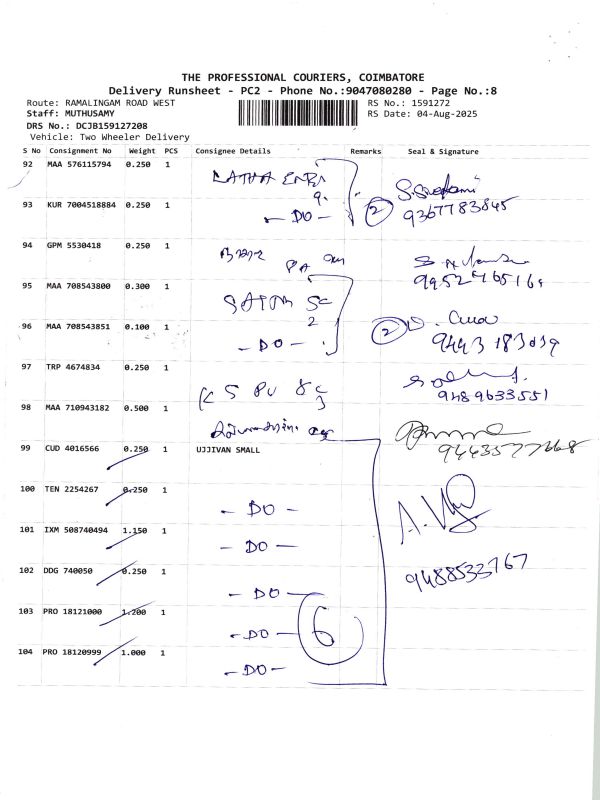 THE PROFESSIONAL COURIERS, COIMBATORE
Delivery Runsheet - PC2 - Phone No.:9047080280 - Page No.:8
Route: RAMALINGAM ROAD WEST RS No.: 1591272
Staff: MUTHUSAMY RS Date: 04-Aug-2025
DRS No.: DCJB159127208
Vehicle: Two Wheeler Delivery
S No Consignment No Weight PCS Consignee Details Remarks Seal & Signature
92 MAA 576115794 0.250 1 LATHA
93 KUR 7004518884 0.250 1 - DO - 2 9367783845
94 GPM 5530418 0.250 1
95 MAA 708543800 0.300 1
96 MAA 708543851 0.100 1 - DO - 2 9443183039
97 TRP 4674834 0.250 1 9489633551
98 MAA 710943182 0.500 1
99 CUD 4016566 0.250 1 UJJIVAN SMALL
100 TEN 2254267 0.250 1 - DO -
101 IXM 508740494 1.150 1 - DO -
102 DDG 740050 0.250 1 - DO - 9488533767
103 PRO 18121000 1.200 1 - DO - 6
104 PRO 18120999 1.000 1 - DO -